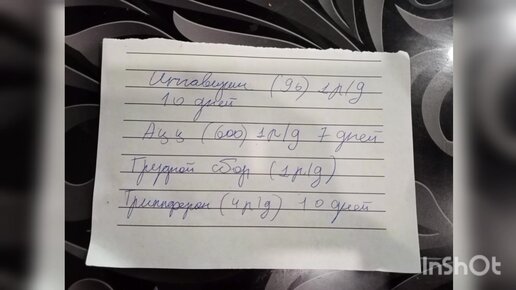 Ингавирин (90) 1 р/д
10 дней
Ацц (600) 1 р/д 7 дней
Грудной сбор (1 р/д)
Гриппферон (4 р/д) 10 дней
InShOt